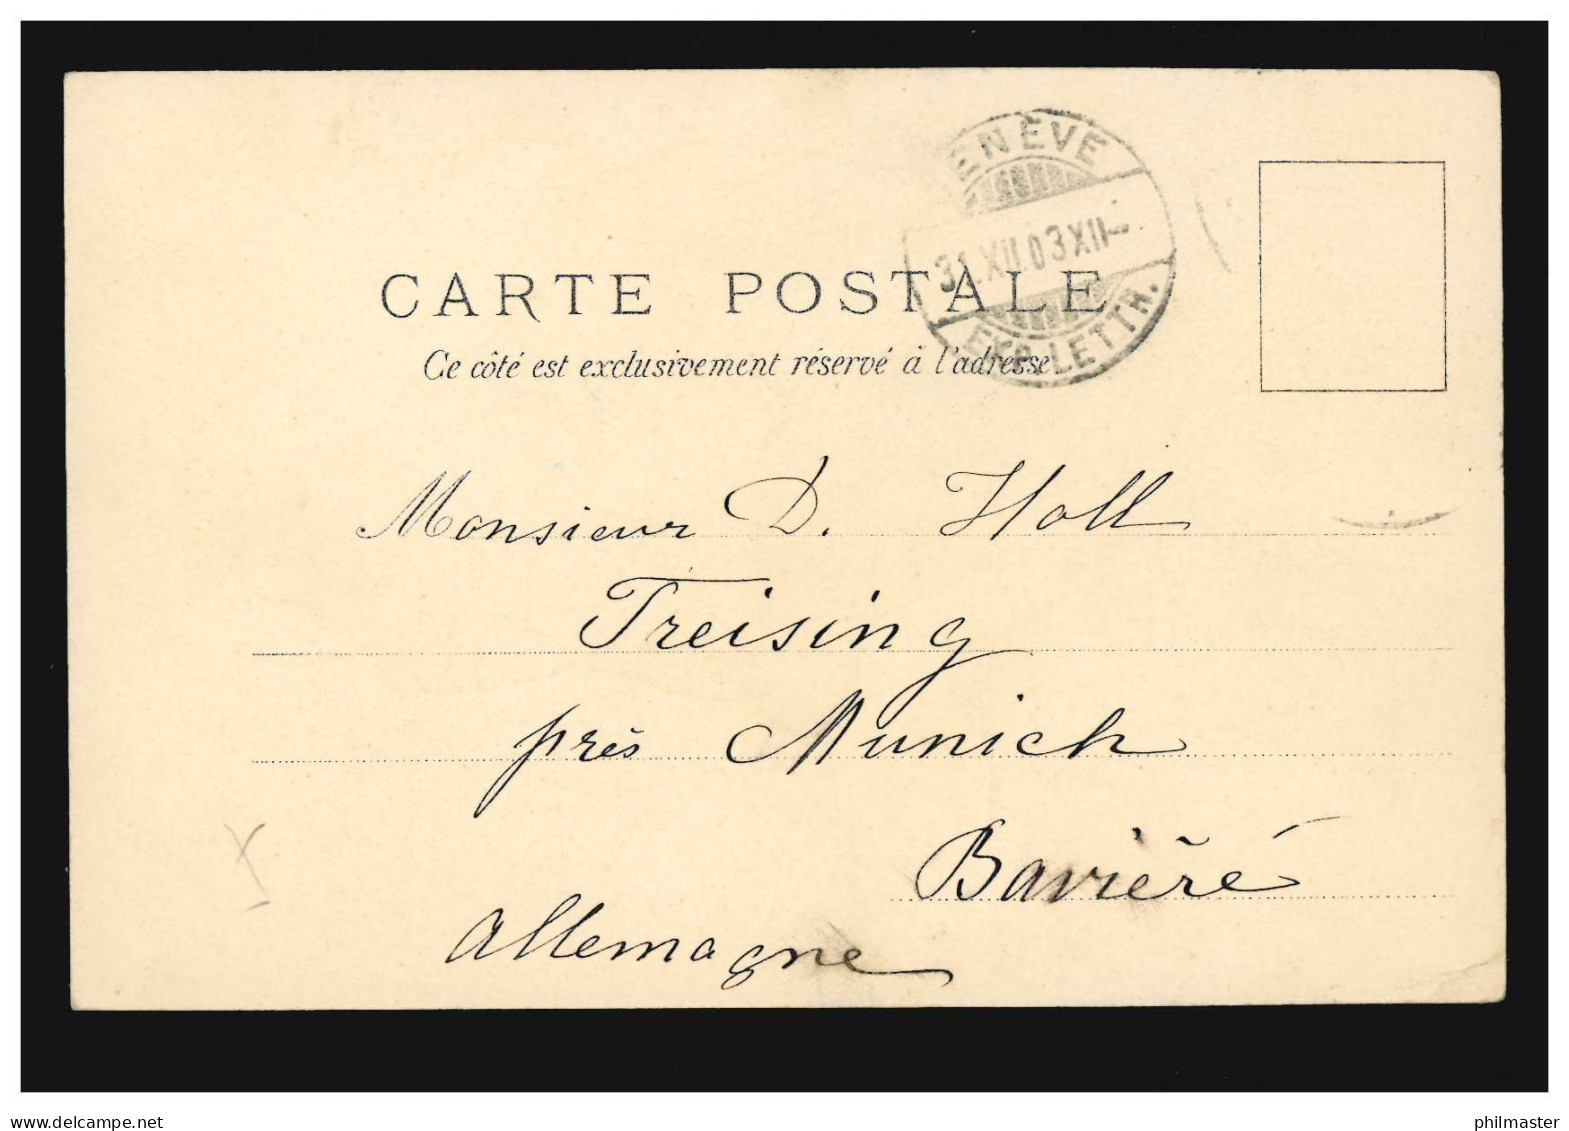 GENÈVE
31.XII.03 XII–
EXP. LETTR.
CARTE POSTALE
Ce côté est exclusivement réservé à l'adresse
Monsieur D. Holl
Freising
près Munich
Bavière
Allemagne
www.delcampe.net
philmaster